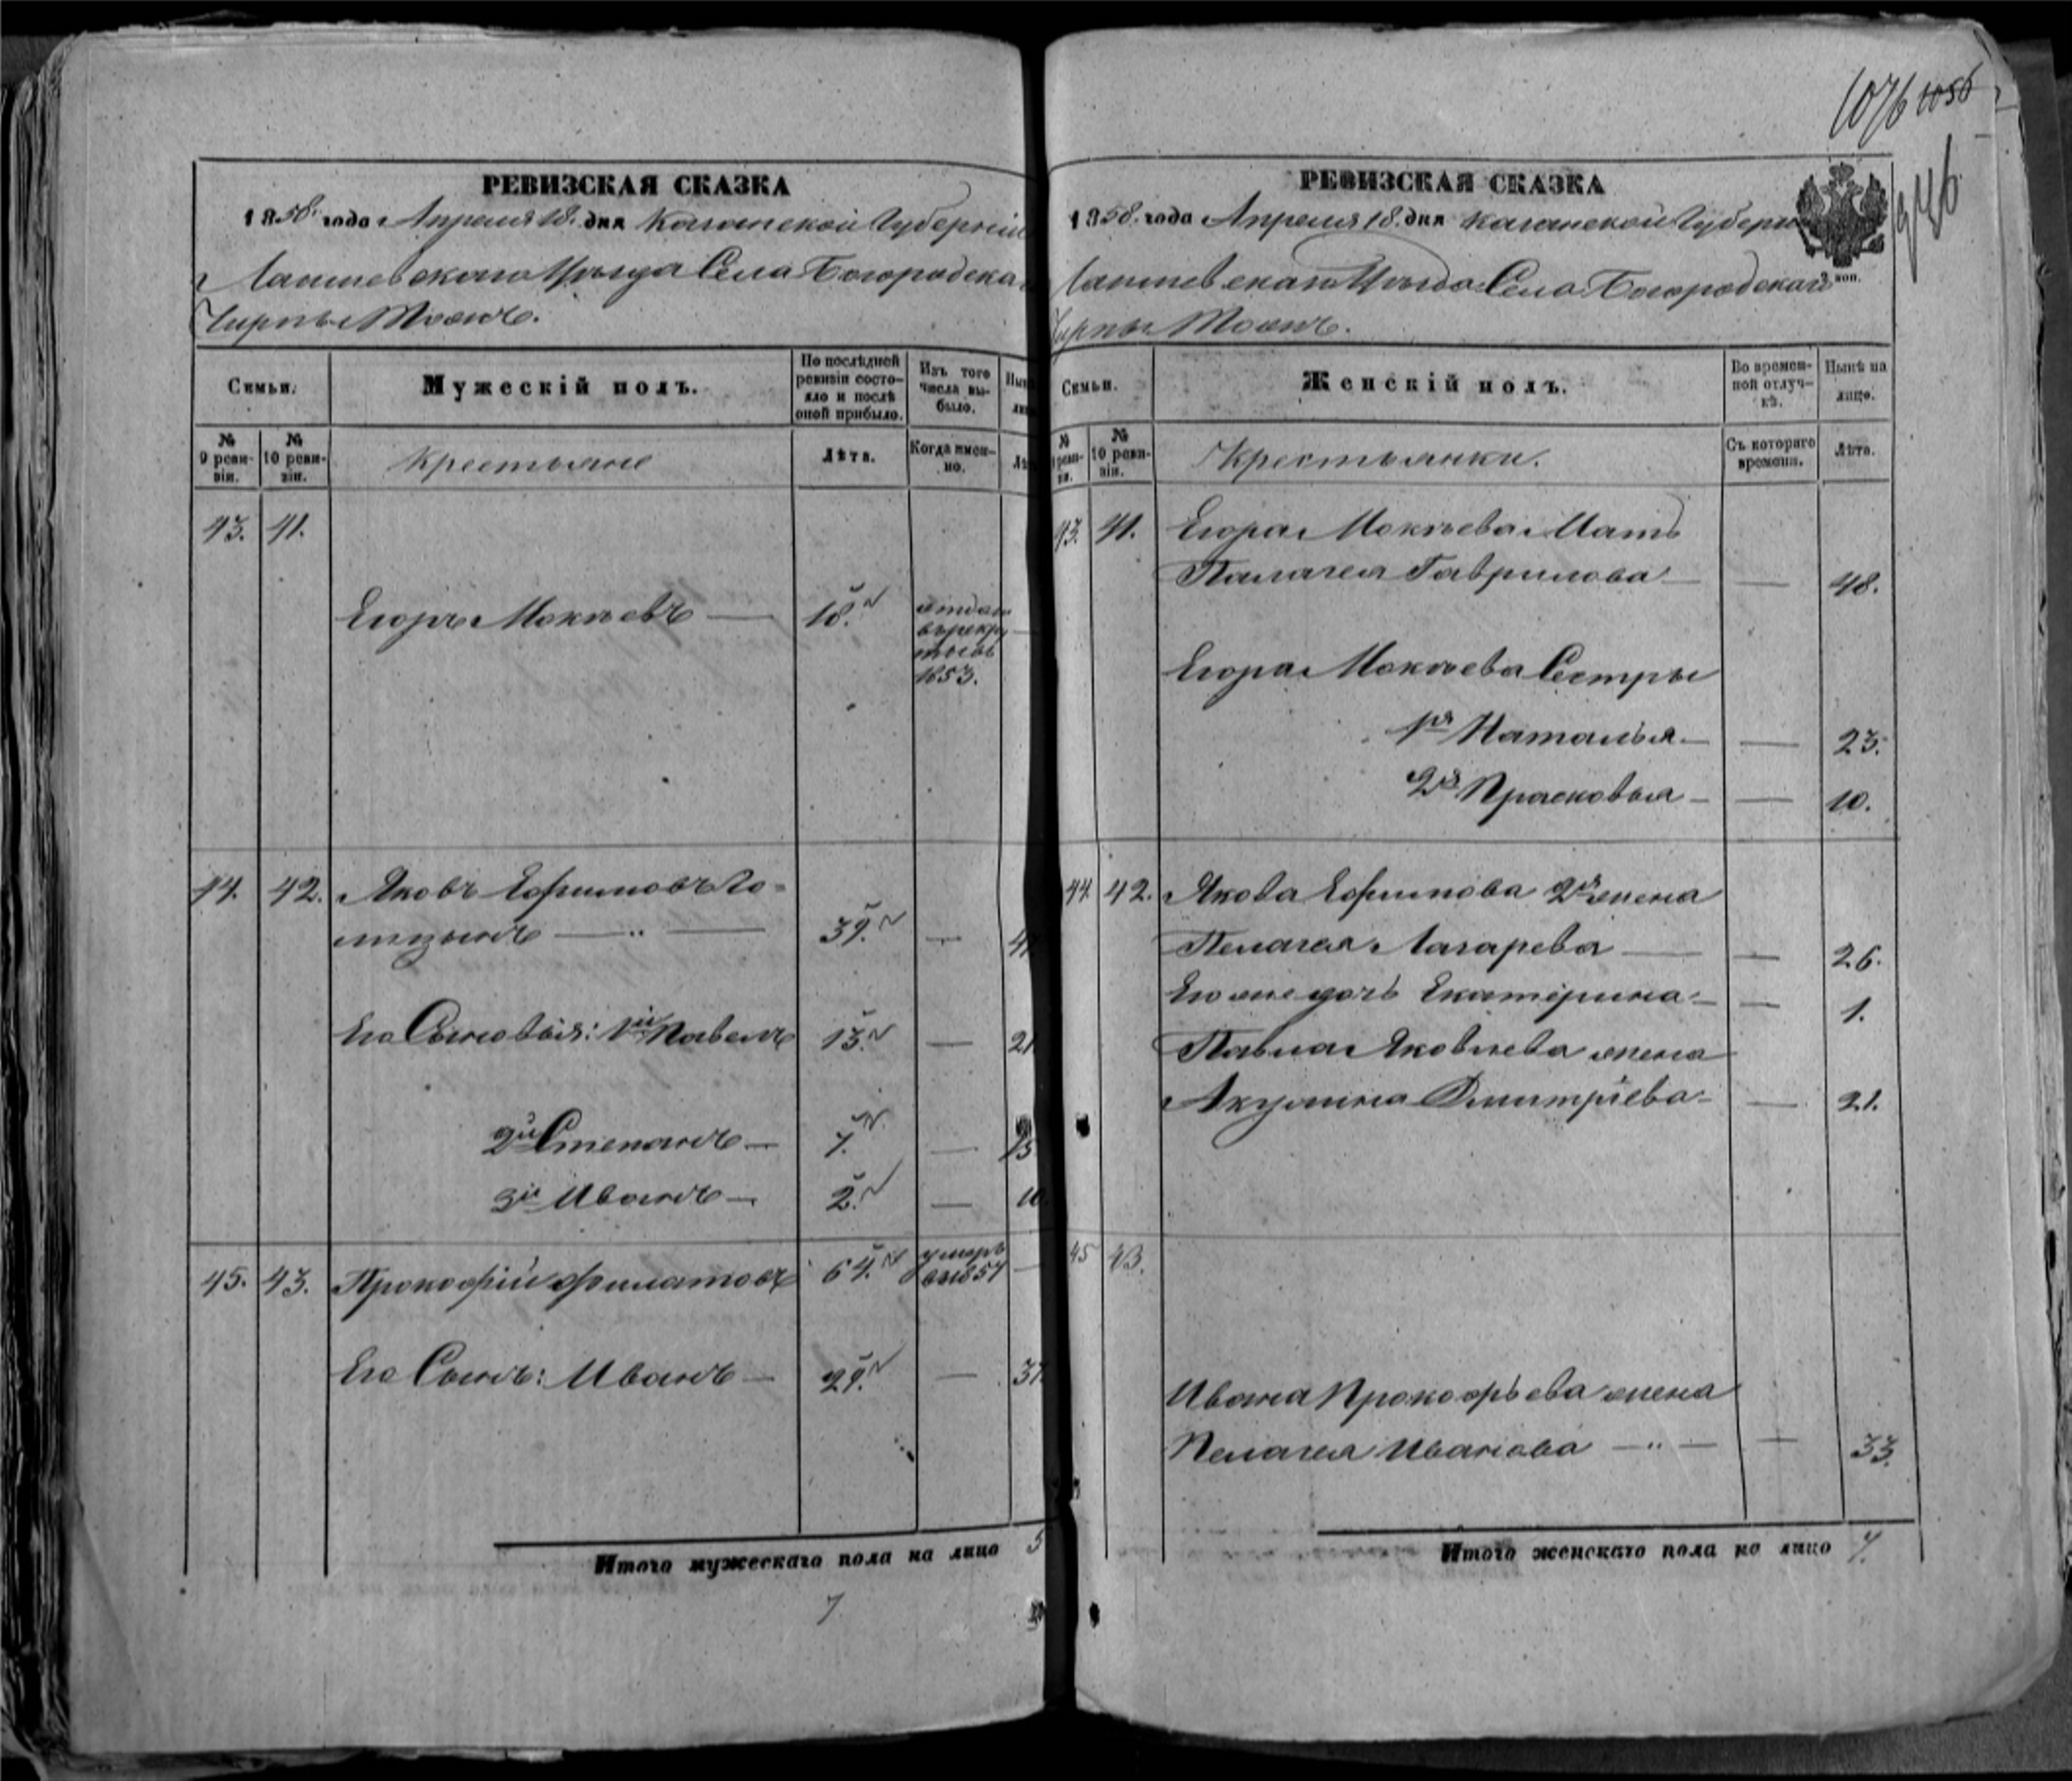 1076 1056
946
РЕВИЗСКАЯ СКАЗКА
1858. года Апреля 18. дня Казанской Губерніи
Лаишевскаго Уѣзда Села Богородска
Чирпы Тожъ.
Семьи.
Мужескій полъ.
По послѣдней ревизіи состояло и послѣ оной прибыло.
Изъ того числа выбыло.
№ 9 ревизіи.
№ 10 ревизіи.
Крестьяне
Лѣта.
Когда именно.
43. 41.
Егоръ Мокѣевъ — 18. отдан
въ рекру
ты въ
1853.
44. 42. Яковъ Ефимовъ Го-
лицынъ — " — 39. —
Его Сыновья: 1й Павелъ 13. — 21
2й Степанъ — 7. — 15
3й Иванъ — 2. — 10
45. 43. Прокофій Филатовъ 64. умеръ
въ 1857 —
Его Сынъ: Иванъ — 29. — 37.
Итого мужескаго пола на лицо 5
7
РЕВИЗСКАЯ СКАЗКА
1858. года Апреля 18. дня Казанской Губерн
Лаишевскаго Уѣзда Села Богородскаго
Чирпы Тожъ.
коп.
Семьи.
Женскій полъ.
Во временной отлучкѣ.
Нынѣ на лицо.
№ 10 ревизіи.
Крестьянки.
Съ котораго времени.
Лѣта.
43. 41. Егора Мокѣева Мать
Палагея Гаврилова — — 48.
Егора Мокѣева Сестры
1я Наталья — — 23.
2я Прасковья — — 10.
44. 42. Якова Ефимова 2я жена
Пелагея Лазарева — — 26.
Его же дочь Екатерина — — 1.
Павла Яковлева жена
Акулина Дмитріева — — 21.
45 43.
Ивана Прокофьева жена
Пелагея Иванова — " — — 33.
Итого женскаго пола на лицо 7.